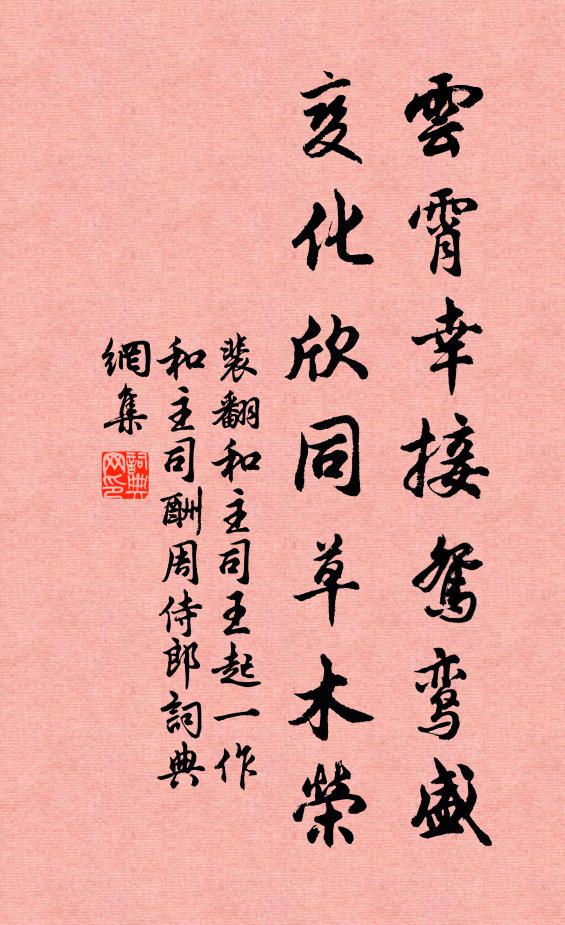 雲霄幸接鴛鸾盛
变化欣同草木榮
裴翻和主司王起一作
和主司酬周侍郎詞典
網集
詞典
网印